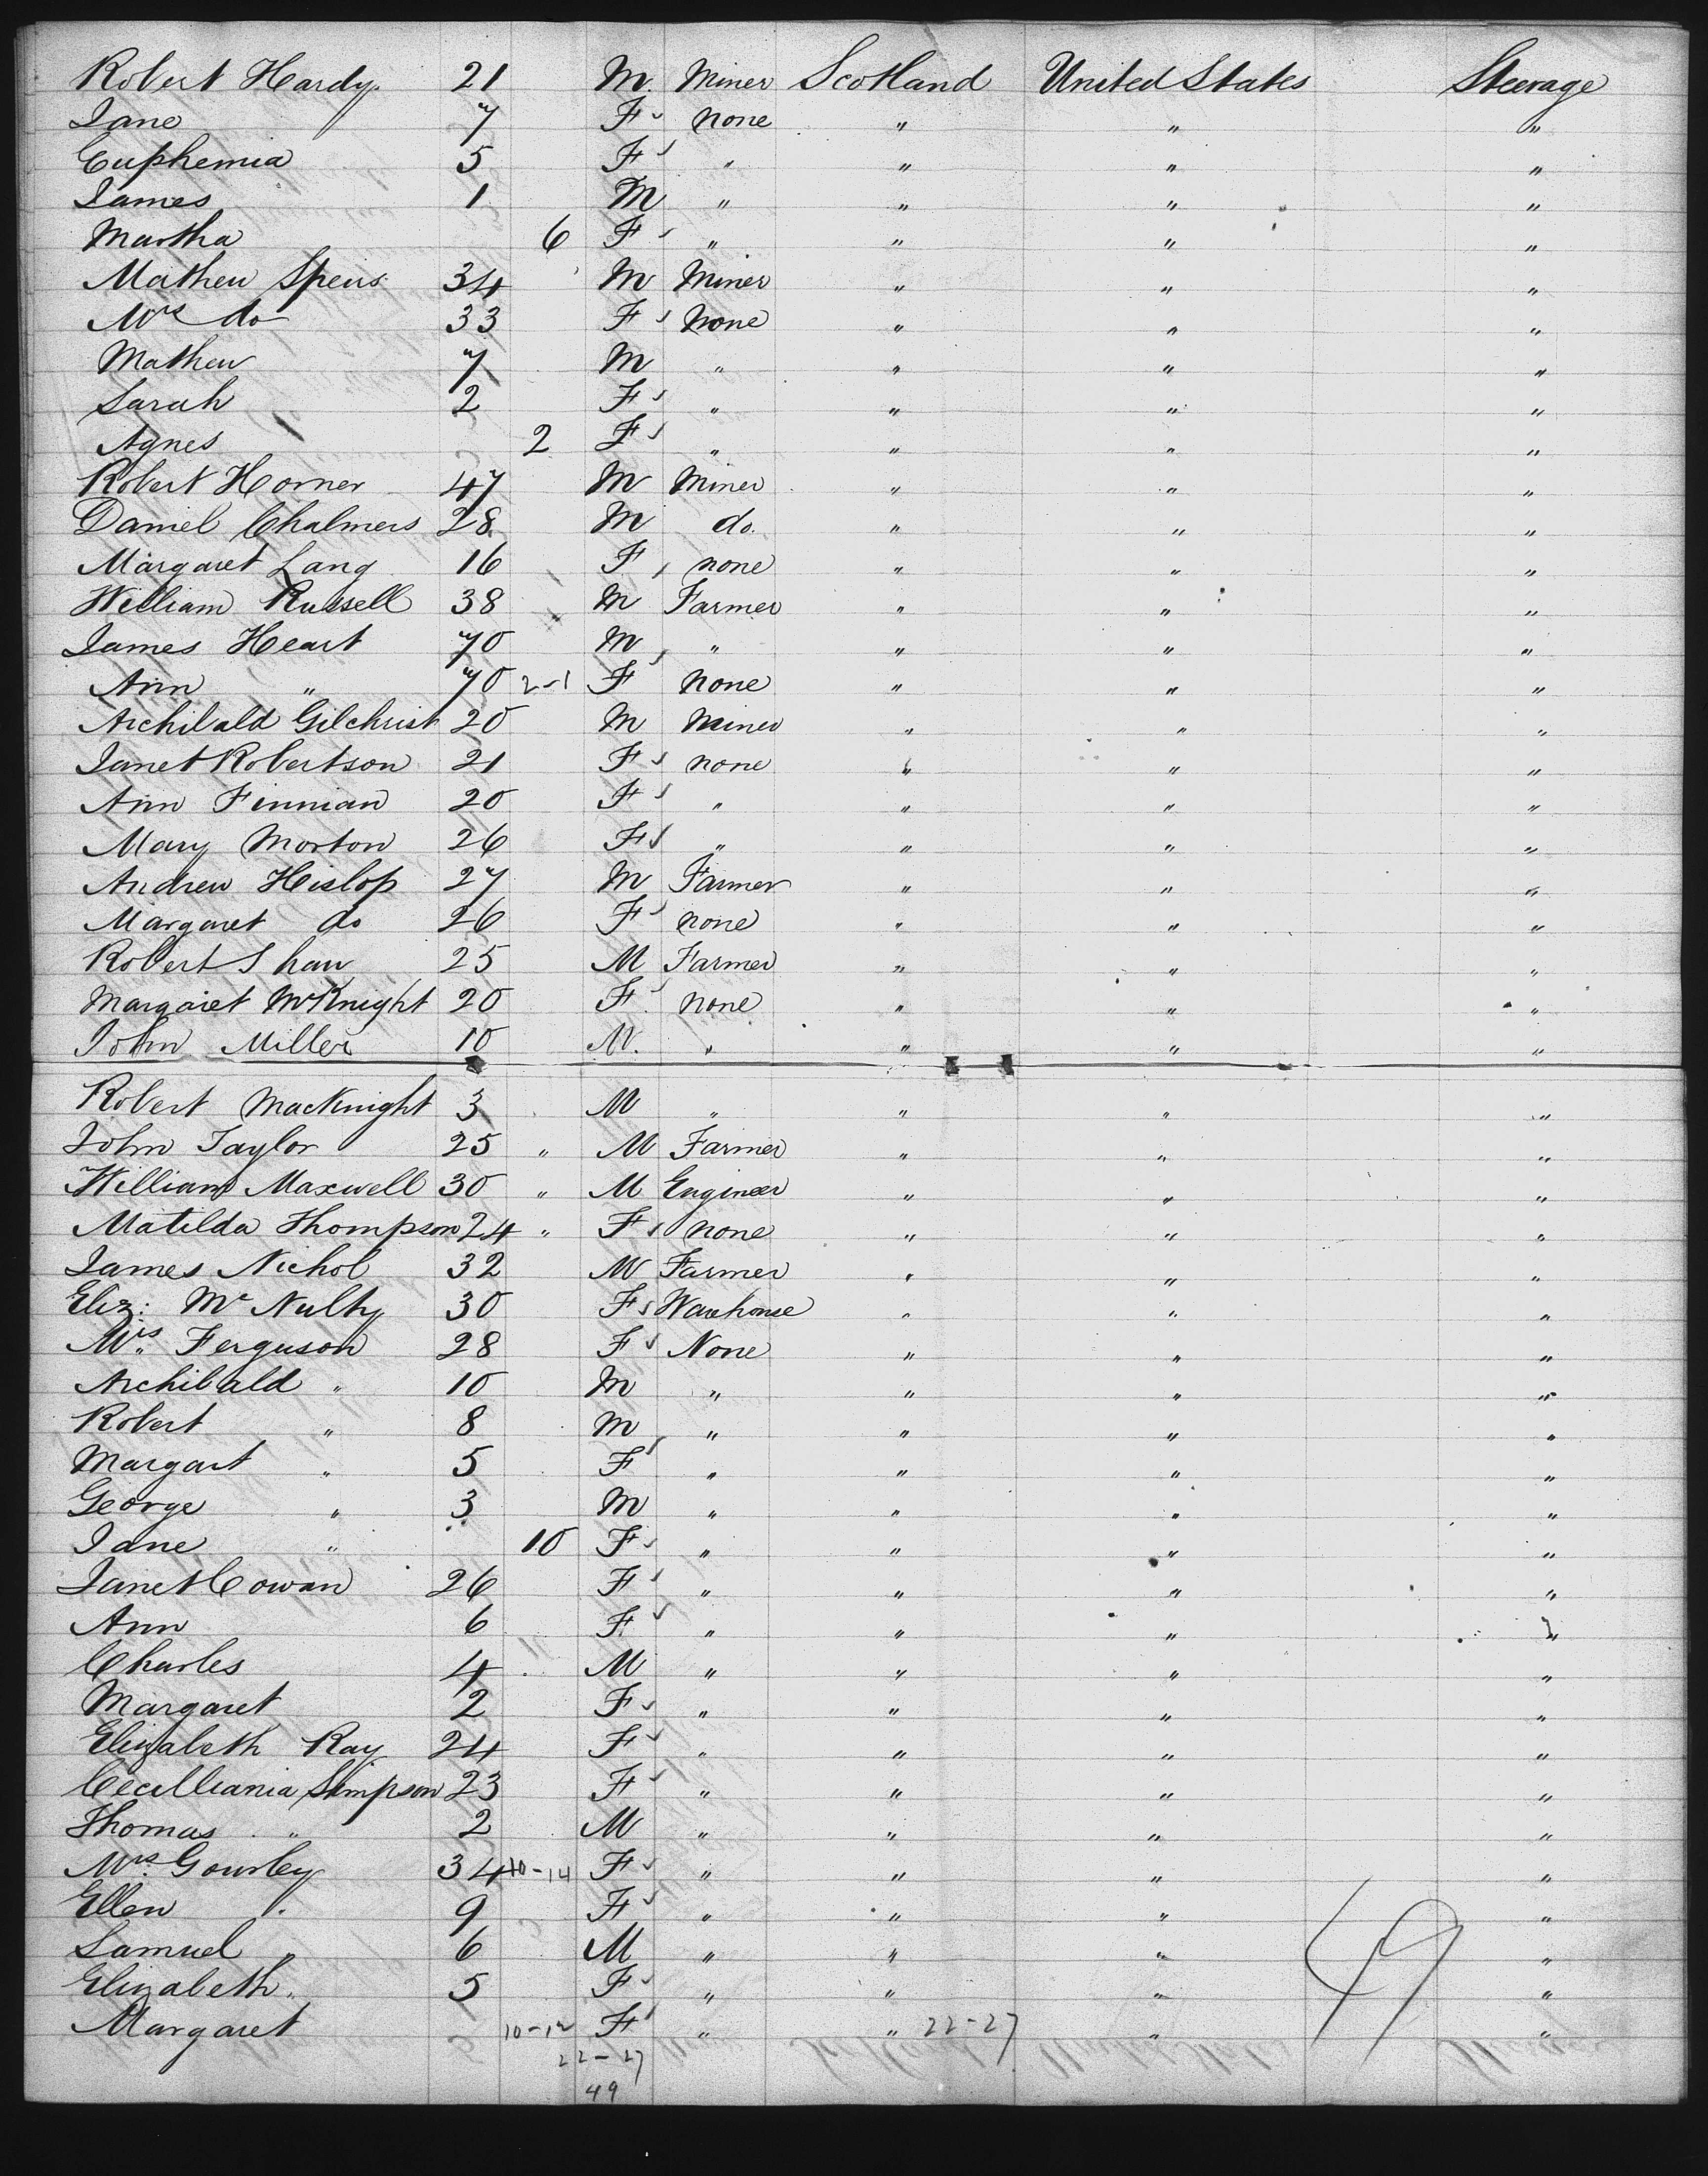 Robert Hardy. 21 M. Miner Scotland United States Steerage
Jane 7 F none " " "
Euphemia 5 F " " " "
James 1 M " " " "
Martha 6 F " " " "
Mathew Speirs 34 M Miner " " "
Mrs do 33 F None " " "
Mathew 7 M " " " "
Sarah 2 F " " " "
Agnes 2 F " " " "
Robert Horner 47 M Miner " " "
Daniel Chalmers 28 M do. " " "
Margaret Lang 16 F none " " "
William Russell 38 M Farmer " " "
James Heart 70 M " " " "
Ann " 70 2-1 F None " " "
Archibald Gilchrist 20 M Miner " " "
Janet Robertson 21 F none " " "
Ann Finnian 20 F " " " "
Mary Morton 26 F " " " "
Andrew Hislop 27 M Farmer " " "
Margaret do 26 F none " " "
Robert Shaw 25 M Farmer " " "
Margaret McKnight 20 F none " " "
John Miller 10 M. " " " "
Robert MacKnight 3 M " " " "
John Taylor 25 " M Farmer " " "
William Maxwell 30 " M Engineer " " "
Matilda Thompson 24 " F none " " "
James Nichol 32 M Farmer " " "
Eliz: Mc Nulty 30 F Warehouse " " "
Mrs. Ferguson 28 F None " " "
Archibald " 10 M " " " "
Robert " 8 M " " " "
Margart " 5 F " " " "
George " 3 M " " " "
Jane " 10 F " " " "
Janet Cowan 26 F " " " "
Ann 6 F " " " "
Charles 4 M " " " "
Margaret 2 F " " " "
Elizabeth Ray 24 F " " " "
Cecilliania Simpson 23 F " " " "
Thomas " 2 M " " " "
Mrs. Gourley 34 10-14 F " " " "
Ellen " 9 F " " " "
Samuel " 6 M " " " "
Elizabeth " 5 F " " " "
49
Margaret 10-12 F " " 22-27 " "
22-27
49